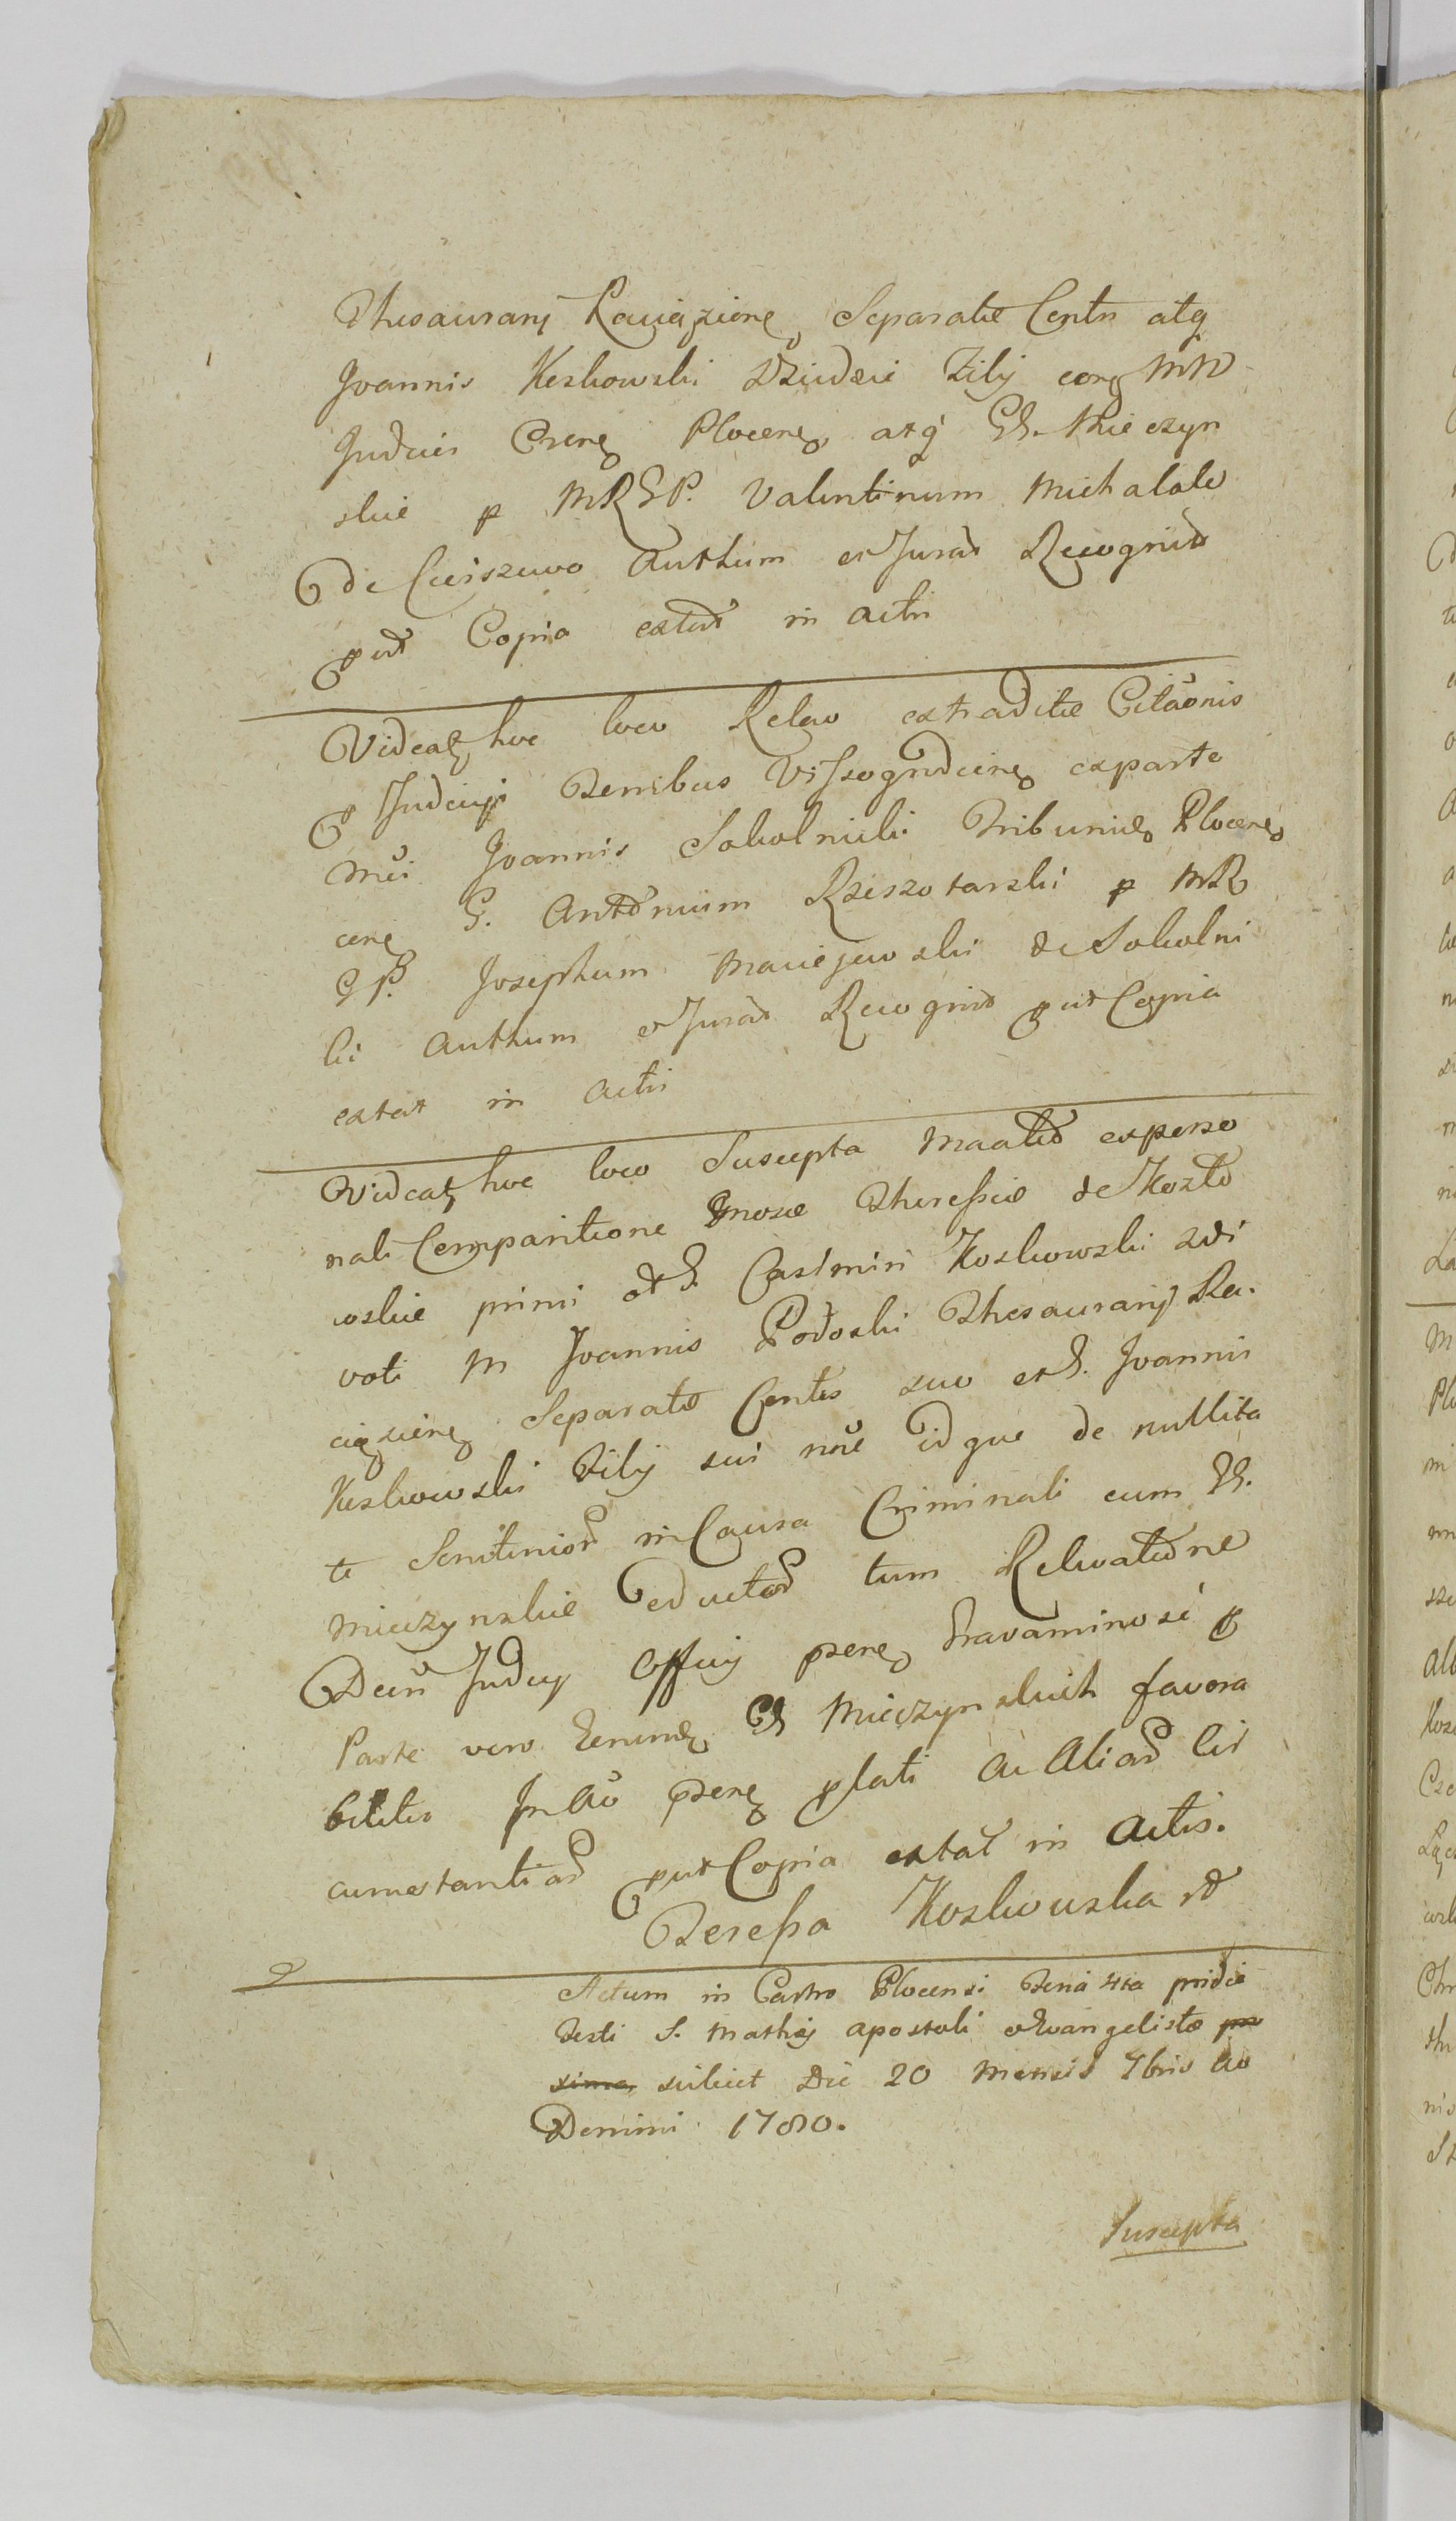 Thesaurarij Raciąziens Separatiē Contŕ atq́
Joannis Koskowski Dziudzie Filij coram MM
Judicio Csrens Plocens atq́ GG. Mieczyn
skie p MRGP. Valentinum Michalak
de Cieiszewo Authum et Jurat̄ Recognit̄
put̄ Copia extat̄ in actis
Videatz hoc loco Relao extraditiē Citāonis
p Judicijs Terribus Wiſsogrodiens exparte
Mci Joannis Sokolnicki Tribunits Plocens
cens G. Antonium Rzeszotarski p MR
GP. Josephum Maciejewski de Sokolni
ki Authum et Jurat̄ Recognit̄ put Copia
extat in actis
Videatz hoc loco Suscepta Maalis̄ experso
nali Comparitione Gnosæ Theresſiæ de Kozło
wskie primi et G. Casimiri Koskowski 2di
voti M Joannis Podoski Thesaurarij Ra.
ciąziens Separatis̄ Contis suo et G. Joannis
Koskowski Filij sui noē idque de nullita
te Scrutinior̄ in Causa Criminali cum GG.
Mieczynskie eductor̄ tum Relevatione
Decŕi Judicij Officij psens Gravaminosi p
Parte vero eorund GG Mieczynskich favora
biliter In Ao psens plati ac aliar̄ cir
cumstantiar̄ put Copia extat̄ in Actis.
Tereſsa Koskowska
Actum in Castro Plocensi Feria 4ta pridie
Festi S. Mathej Apostoli et Evangelistæ pro
xima scilicet Die 20 Mensis 7bris Ao
Domini 1780.
Suscepta